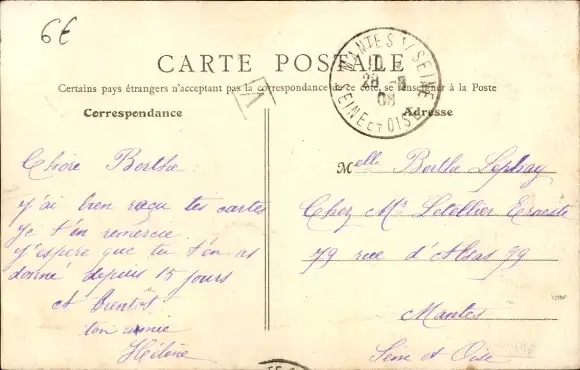 6€
CARTE POSTALE
Certains pays étrangers n'acceptant pas la correspondance de ce côté, se renseigner à la Poste
Correspondance
Adresse
MANTES S/ SEINE
28 -8
08
SEINE ET OISE
A
Chère Berthe :
j'ai bien reçu tes cartes
je t'en remercie
j'espère que tu t'en as
donné depuis 15 jours
A bientôt
ton amie
Hélène
Melle Berthe Lephay
Chez Mr Letellier Erneste
79 rue d'Alsas 79
Mantes
Seine et Oise